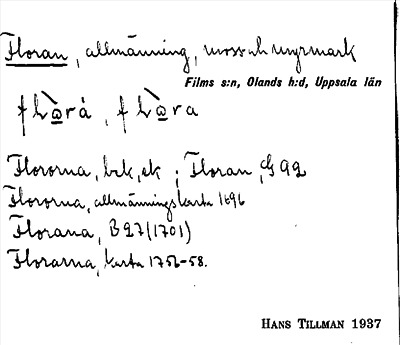 Floran, allmänning, moss och myrmark
Films s:n, Olands h:d, Uppsala län
Flororna, brk, ek; Floran, G 92
Flororna, allmänningskarta 1696
Florana, B 27 (1701)
Florarna, karta 1756-58.
HANS TILLMAN 1937